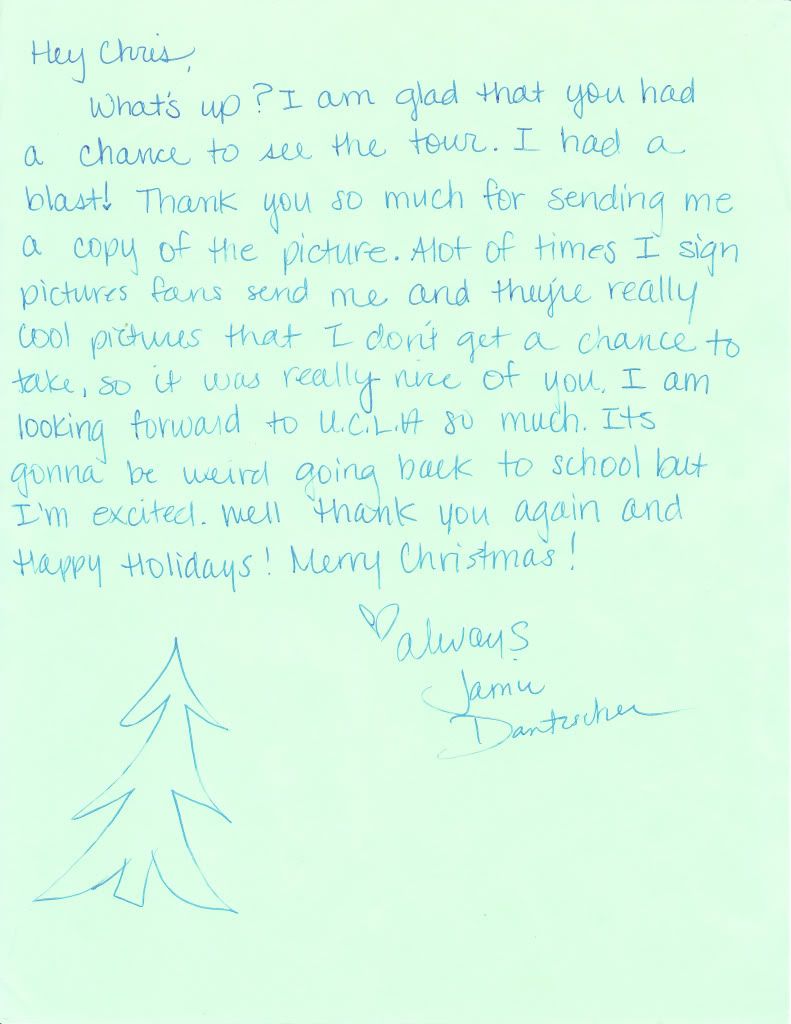 Hey Chris,
What's up? I am glad that you had
a chance to see the tour. I had a
blast! Thank you so much for sending me
a copy of the picture. Alot of times I sign
pictures fans send me and they're really
cool pictures that I don't get a chance to
take, so it was really nice of you. I am
looking forward to U.C.L.A so much. Its
gonna be weird going back to school but
I'm excited. Well thank you again and
Happy Holidays! Merry Christmas!
always
Jamie
Dantzscher